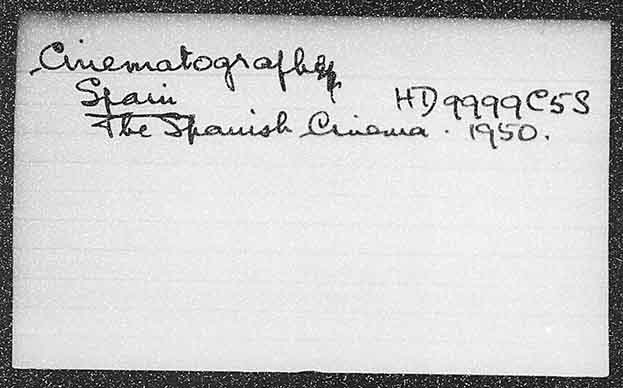 Cinematography
Spain HD9999C5S
The Spanish Cinema. 1950.